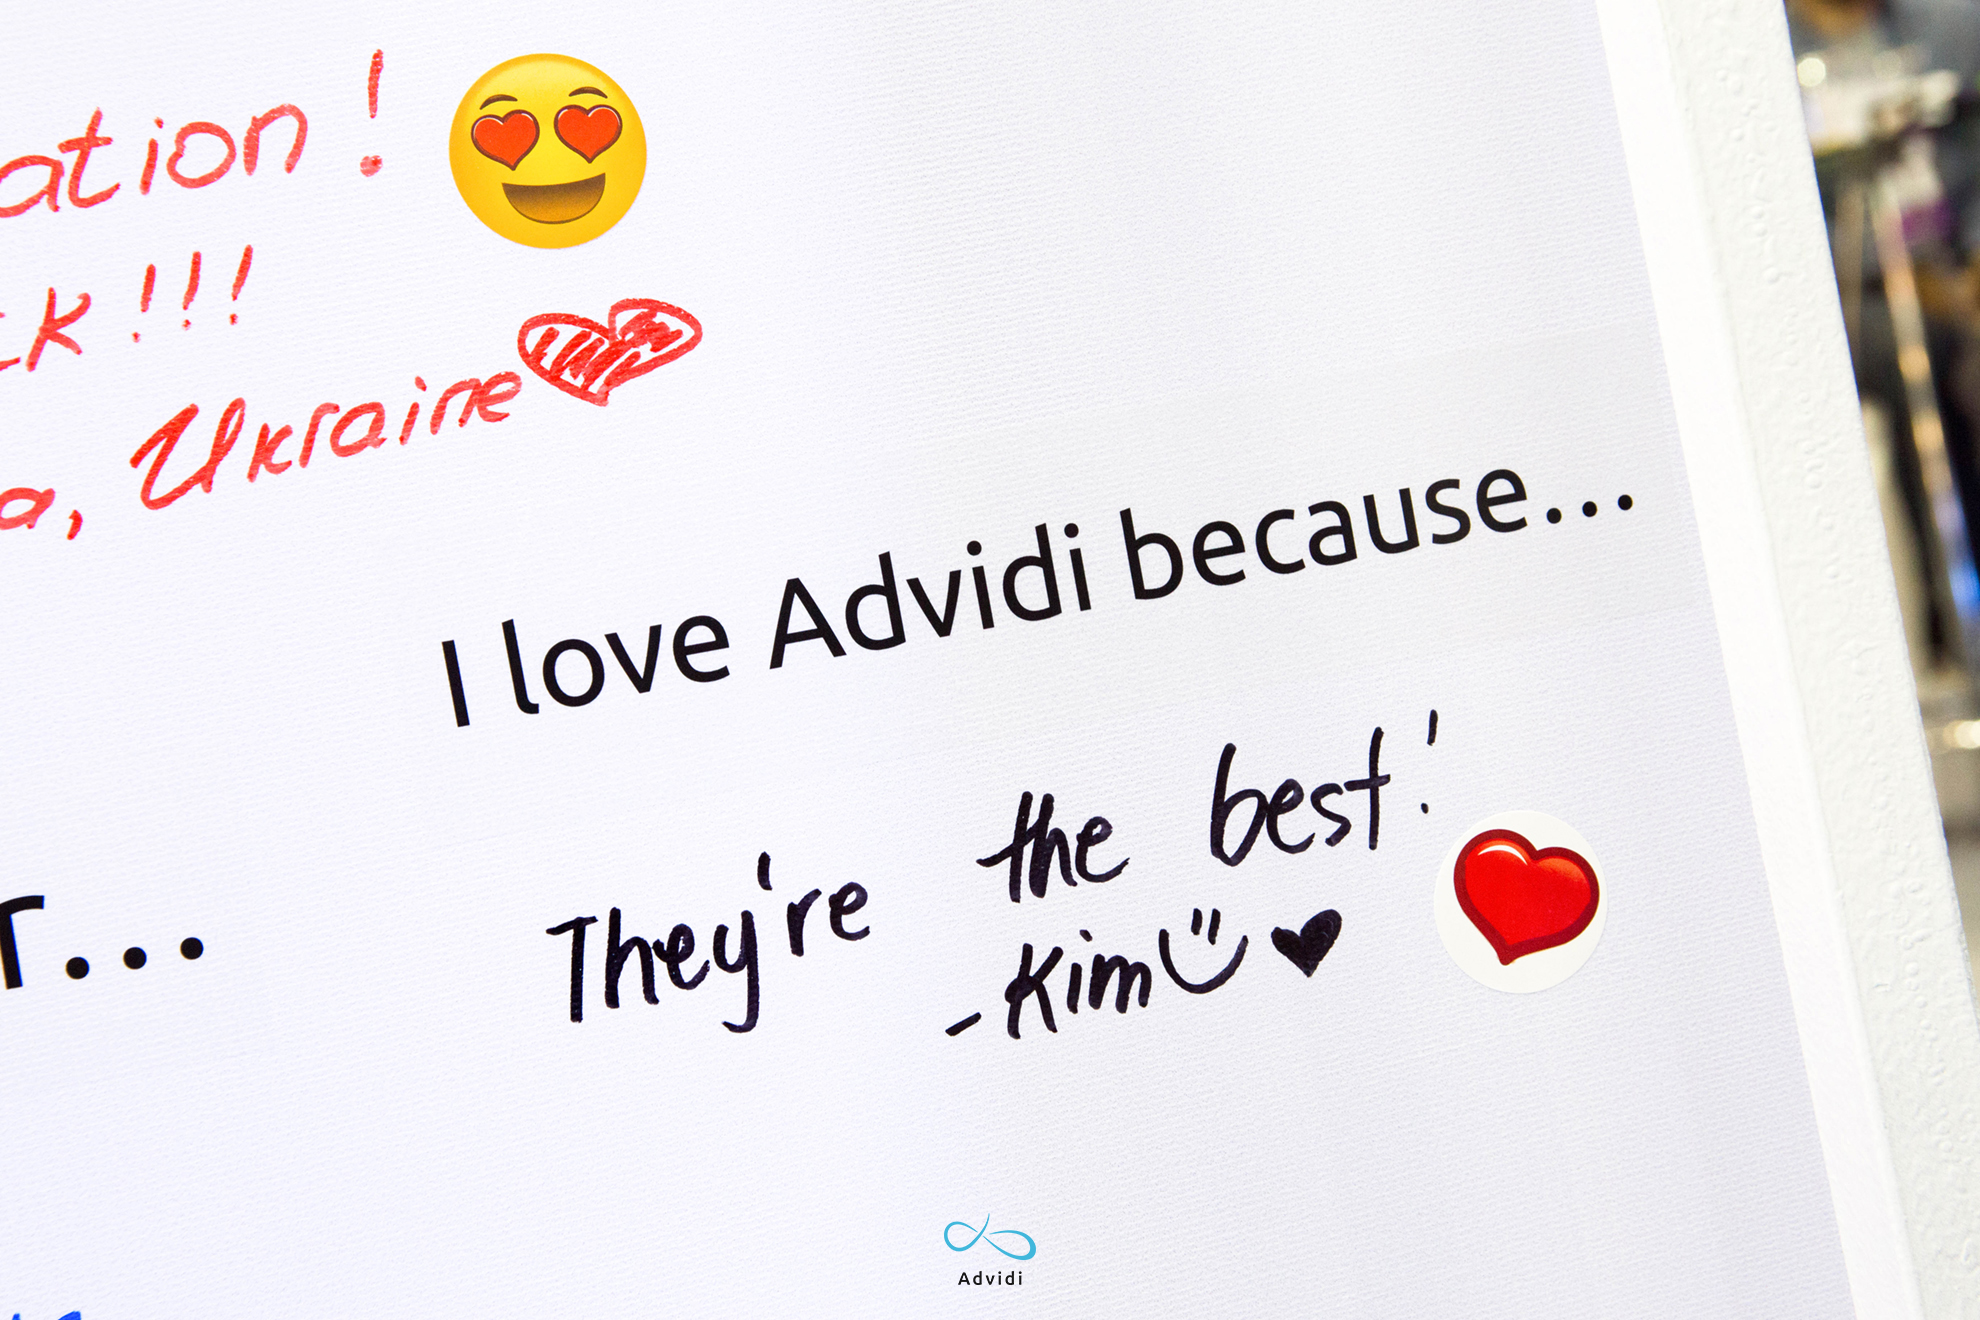 ation!
ck!!!
a, Ukraine
I love Advidi because...
They're the best!
-Kim
T...
Advidi